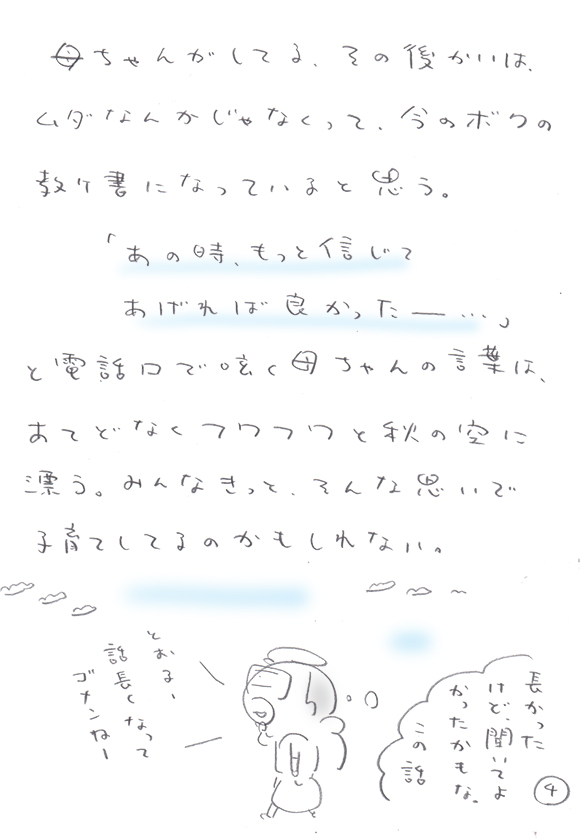 母ちゃんがしてる、その後かいは、
ムダなんかじゃなくって、今のボクの
教ケ書になっていると思う。
「あの時、もっと信じて
あげれば良かったー…」
と電話口で呟く母ちゃんの言葉は、
あてどなくフワフワと秋の空に
漂う。みんなきっと、そんな思いで
子育てしてるのかもしれない。
長かった
けど、聞いてよ
かったかもな。
この話
とおる、
話長くなって
ゴメンねー
④